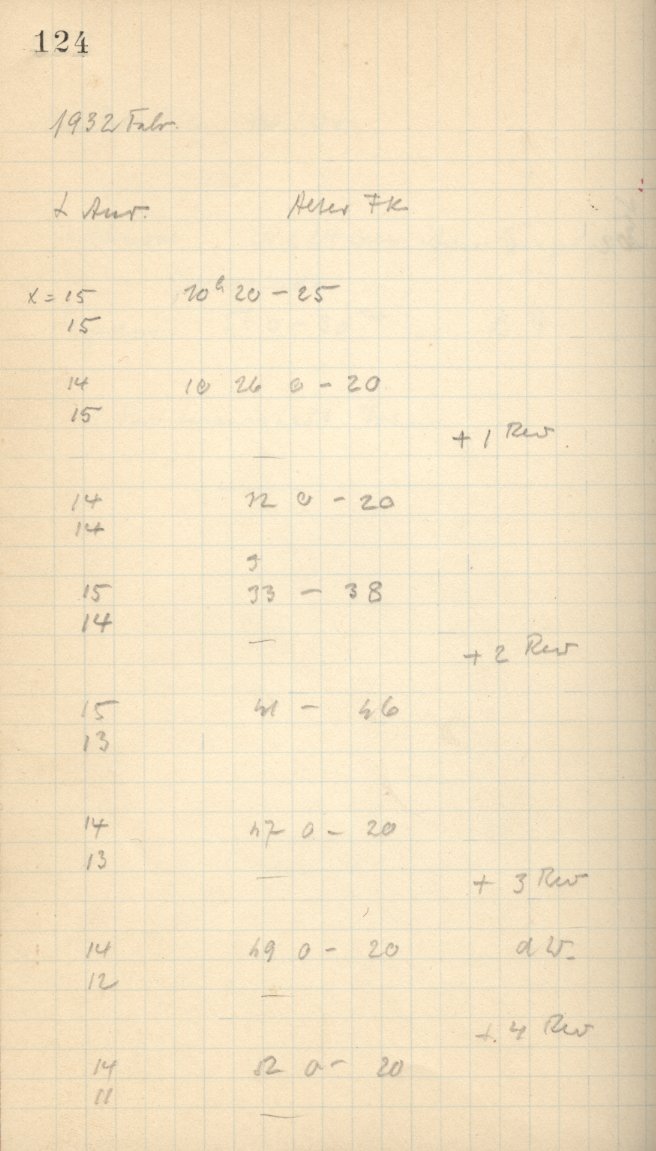 124
1932 Febr.
L Aur. Alter FK
x = 15 10h 20 - 25
15
14 10 26 0 - 20
15
+ 1 Rev
—
14 32 0 - 20
14
15 33 - 38
14
—
+ 2 Rev
15 41 - 46
13
14 47 0 - 20
13
—
+ 3 Rev
14 49 0 - 20
12
—
+ 4 Rev
14 52 0 - 20
11
—